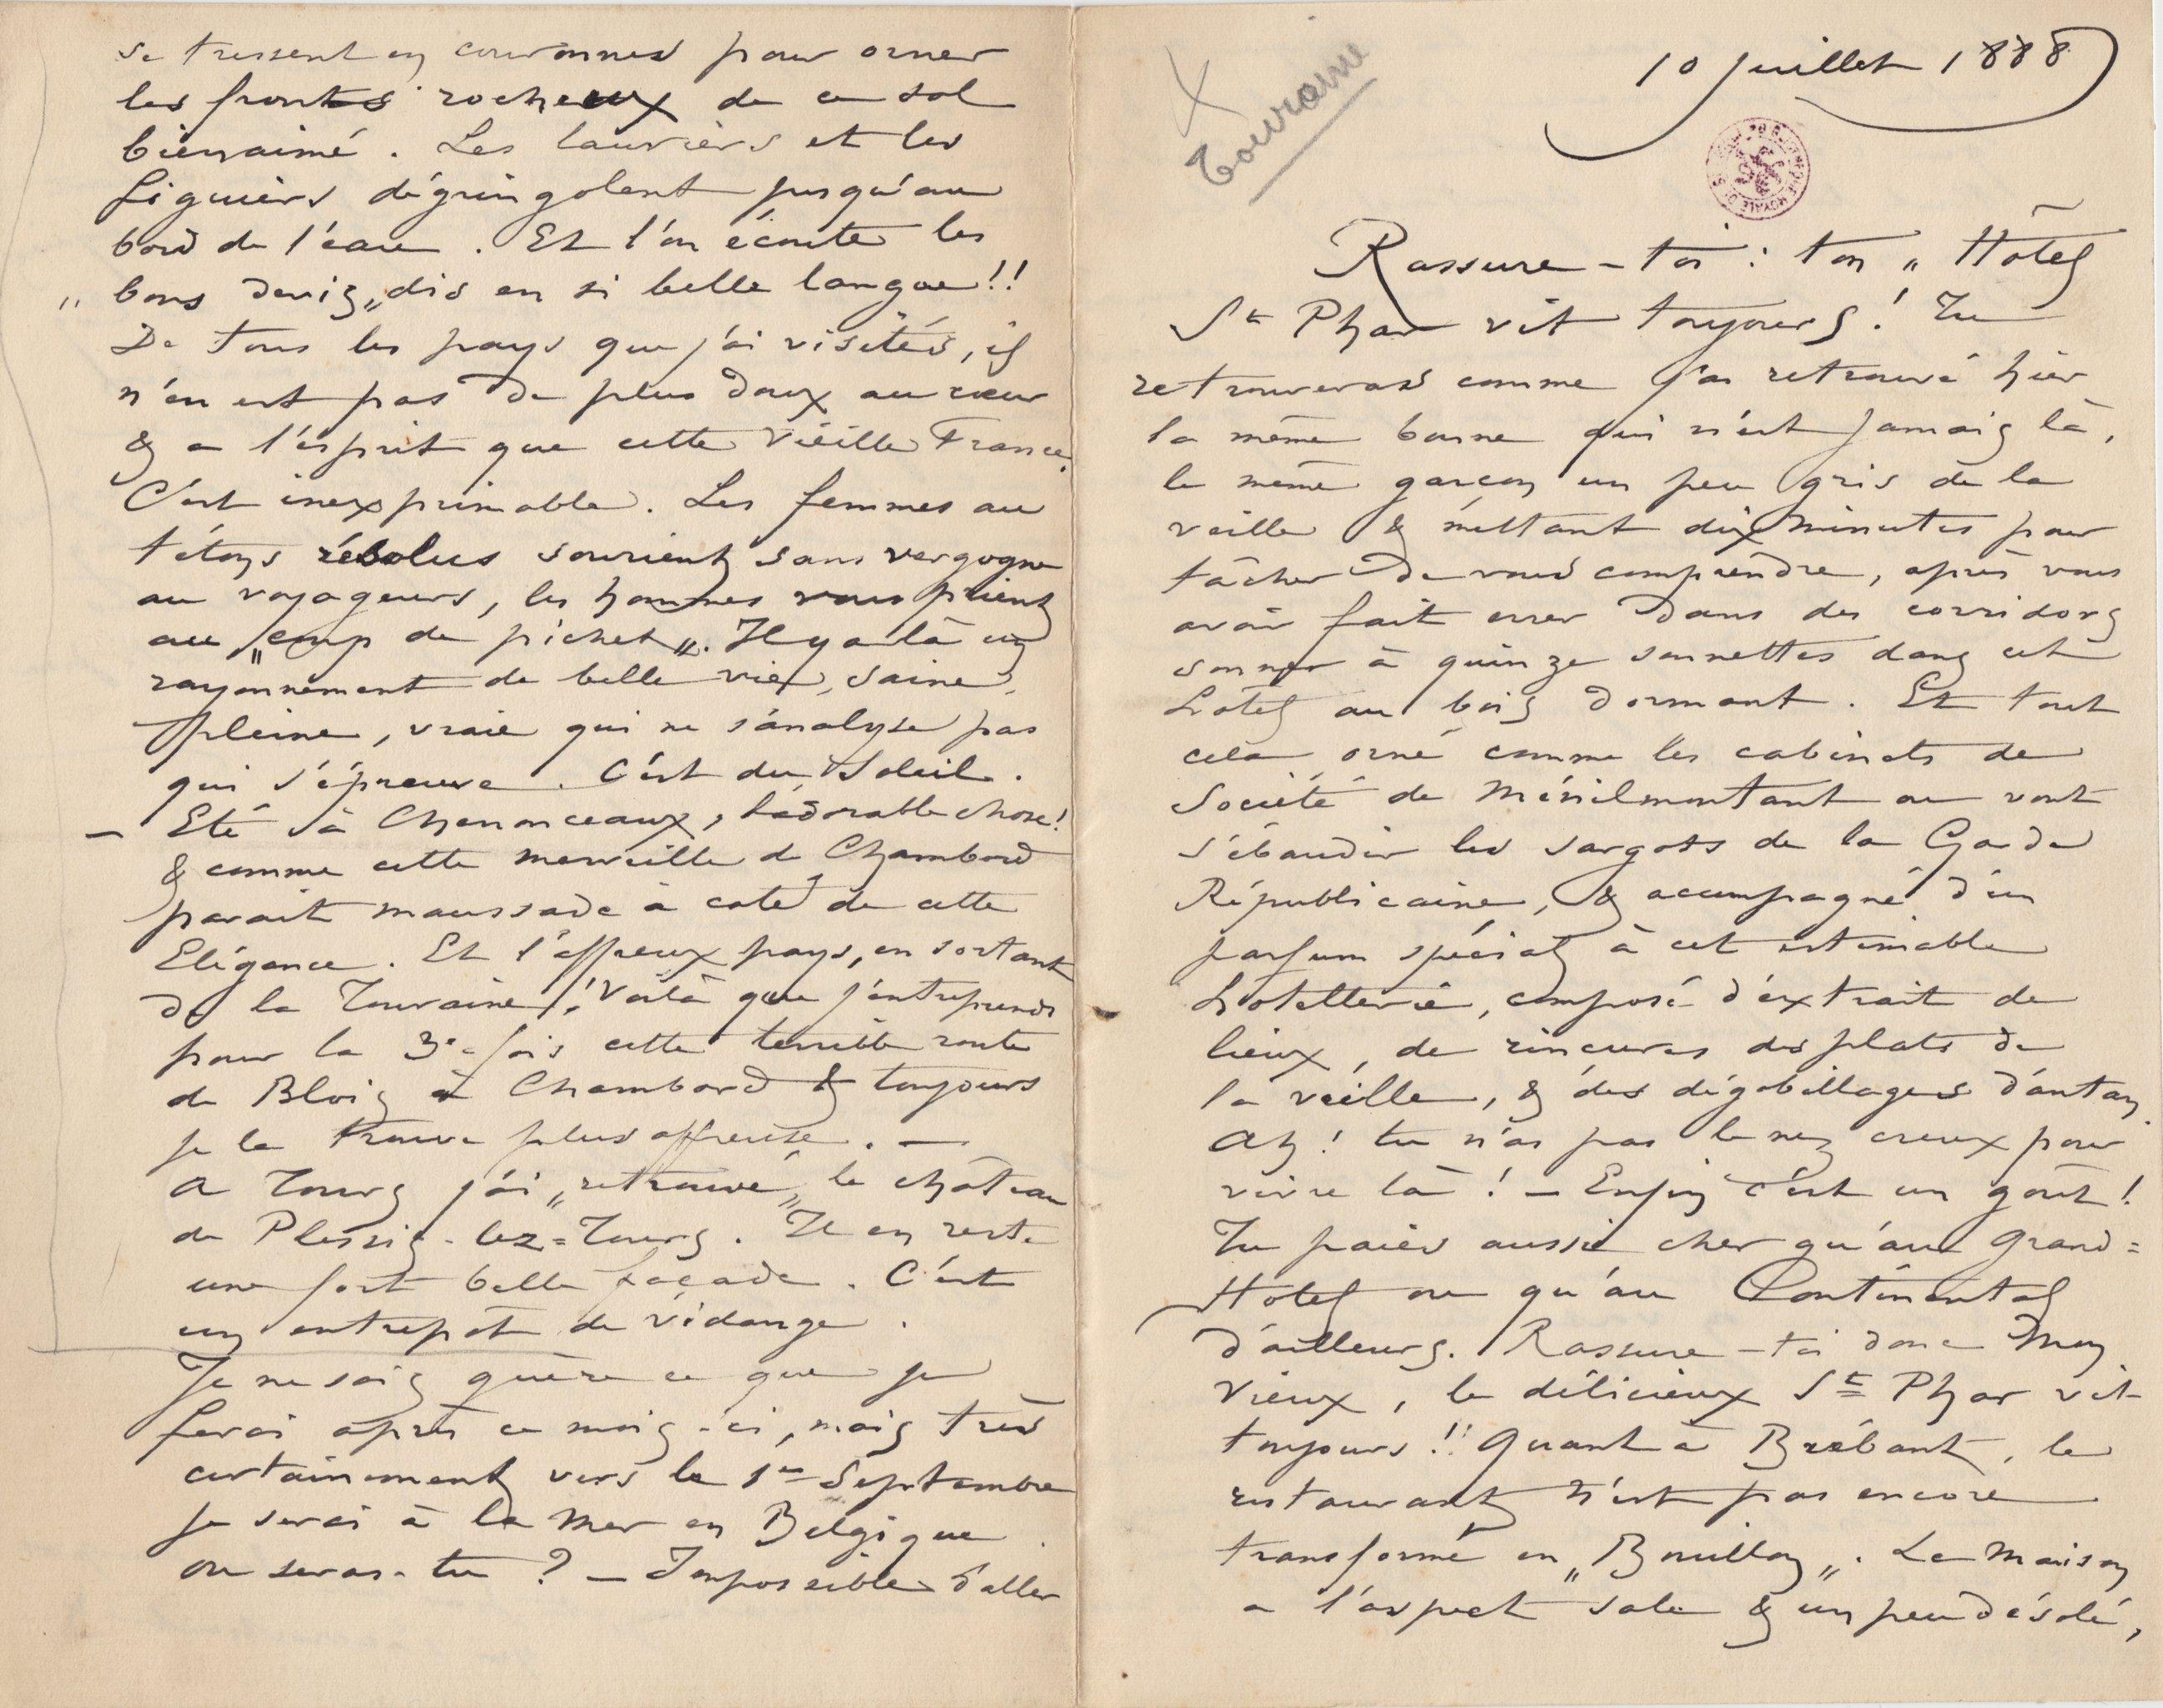 10 juillet 1888
X
Touraine
Rassure-toi : ton „ Hôtel
St Phar vit toujours ! Tu
retrouveras comme j'ai retrouvé hier
la même bonne qui n'est jamais là,
le même garçon un peu gris de la
veille & mettant dix minutes pour
tâcher de vous comprendre, après vous
avoir fait errer dans des corridors
sonner à quinze sonnettes dans cet
hotel au bois dormant. Et tout
cela orné comme les cabinets de
Société de Ménilmontant ou vont
s'ébaudir les sergots de la Garde
Républicaine, & accompagné d'un
parfum spécial à cet estimable
hotellerie, composé d'extrait de
lieux, de rinçures des plats de
la veille, & des dégobillages d'antan.
Ah ! tu n'as pas le nez creux pour
vivre là ! — Enfin c'est un goût !
Tu paies aussi cher qu'au Grand=
Hotel ou qu'au Continental
d'ailleurs. Rassure-toi donc mon
vieux, le délicieux St Phar vit
toujours !! Quant à Brébant, le
restaurant n'est pas encore
transformé en „Bouillon„. La maison
a l'aspect sale & un peu désolé,
se tressent en couronnes pour orner
les fronts rocheux de ce sol
bienaimé. Les lauriers et les
figuiers dégringolent jusqu'au
bord de l'eau. Et l'on écoute les
„ bons deviz„ dis en si belle langue !!
De tous les pays que j'ai visités, il
n'en est pas de plus doux au cœur
& a l'esprit que cette vieille France.
C'est inexprimable. Les femmes au
tétons résolus sourient sans vergogne
au voyageurs, les hommes vous prient
au „coup de pichet„. Il y a là un
rayonnement de belle vie, saine,
pleine, vraie qui ne s'analyse pas
qui s'épreuve. C'est du Soleil.
— Eté à Chenonceaux, l'adorable chose !
& comme cette merveille de Chambord
parait maussade à coté de cette
Elégance. Et l'affreux pays, en sortant
de la Touraine ! Voilà que j'entreprends
pour la 3e fois cette terrible route
de Blois à Chambord & toujours
je la trouve plus affreuse. —
A Tours j'ai „retrouvé„ le château
de Plessis-lez=Tours. Il en reste
une fort belle façade. C'est
un entrepôt de vidange.
Je ne sais guère ce que je
ferai après ce mois-ci, mais très
certainement vers le 1er Septembre
je serai à la mer en Belgique.
ou seras-tu ? — Impossible d'aller